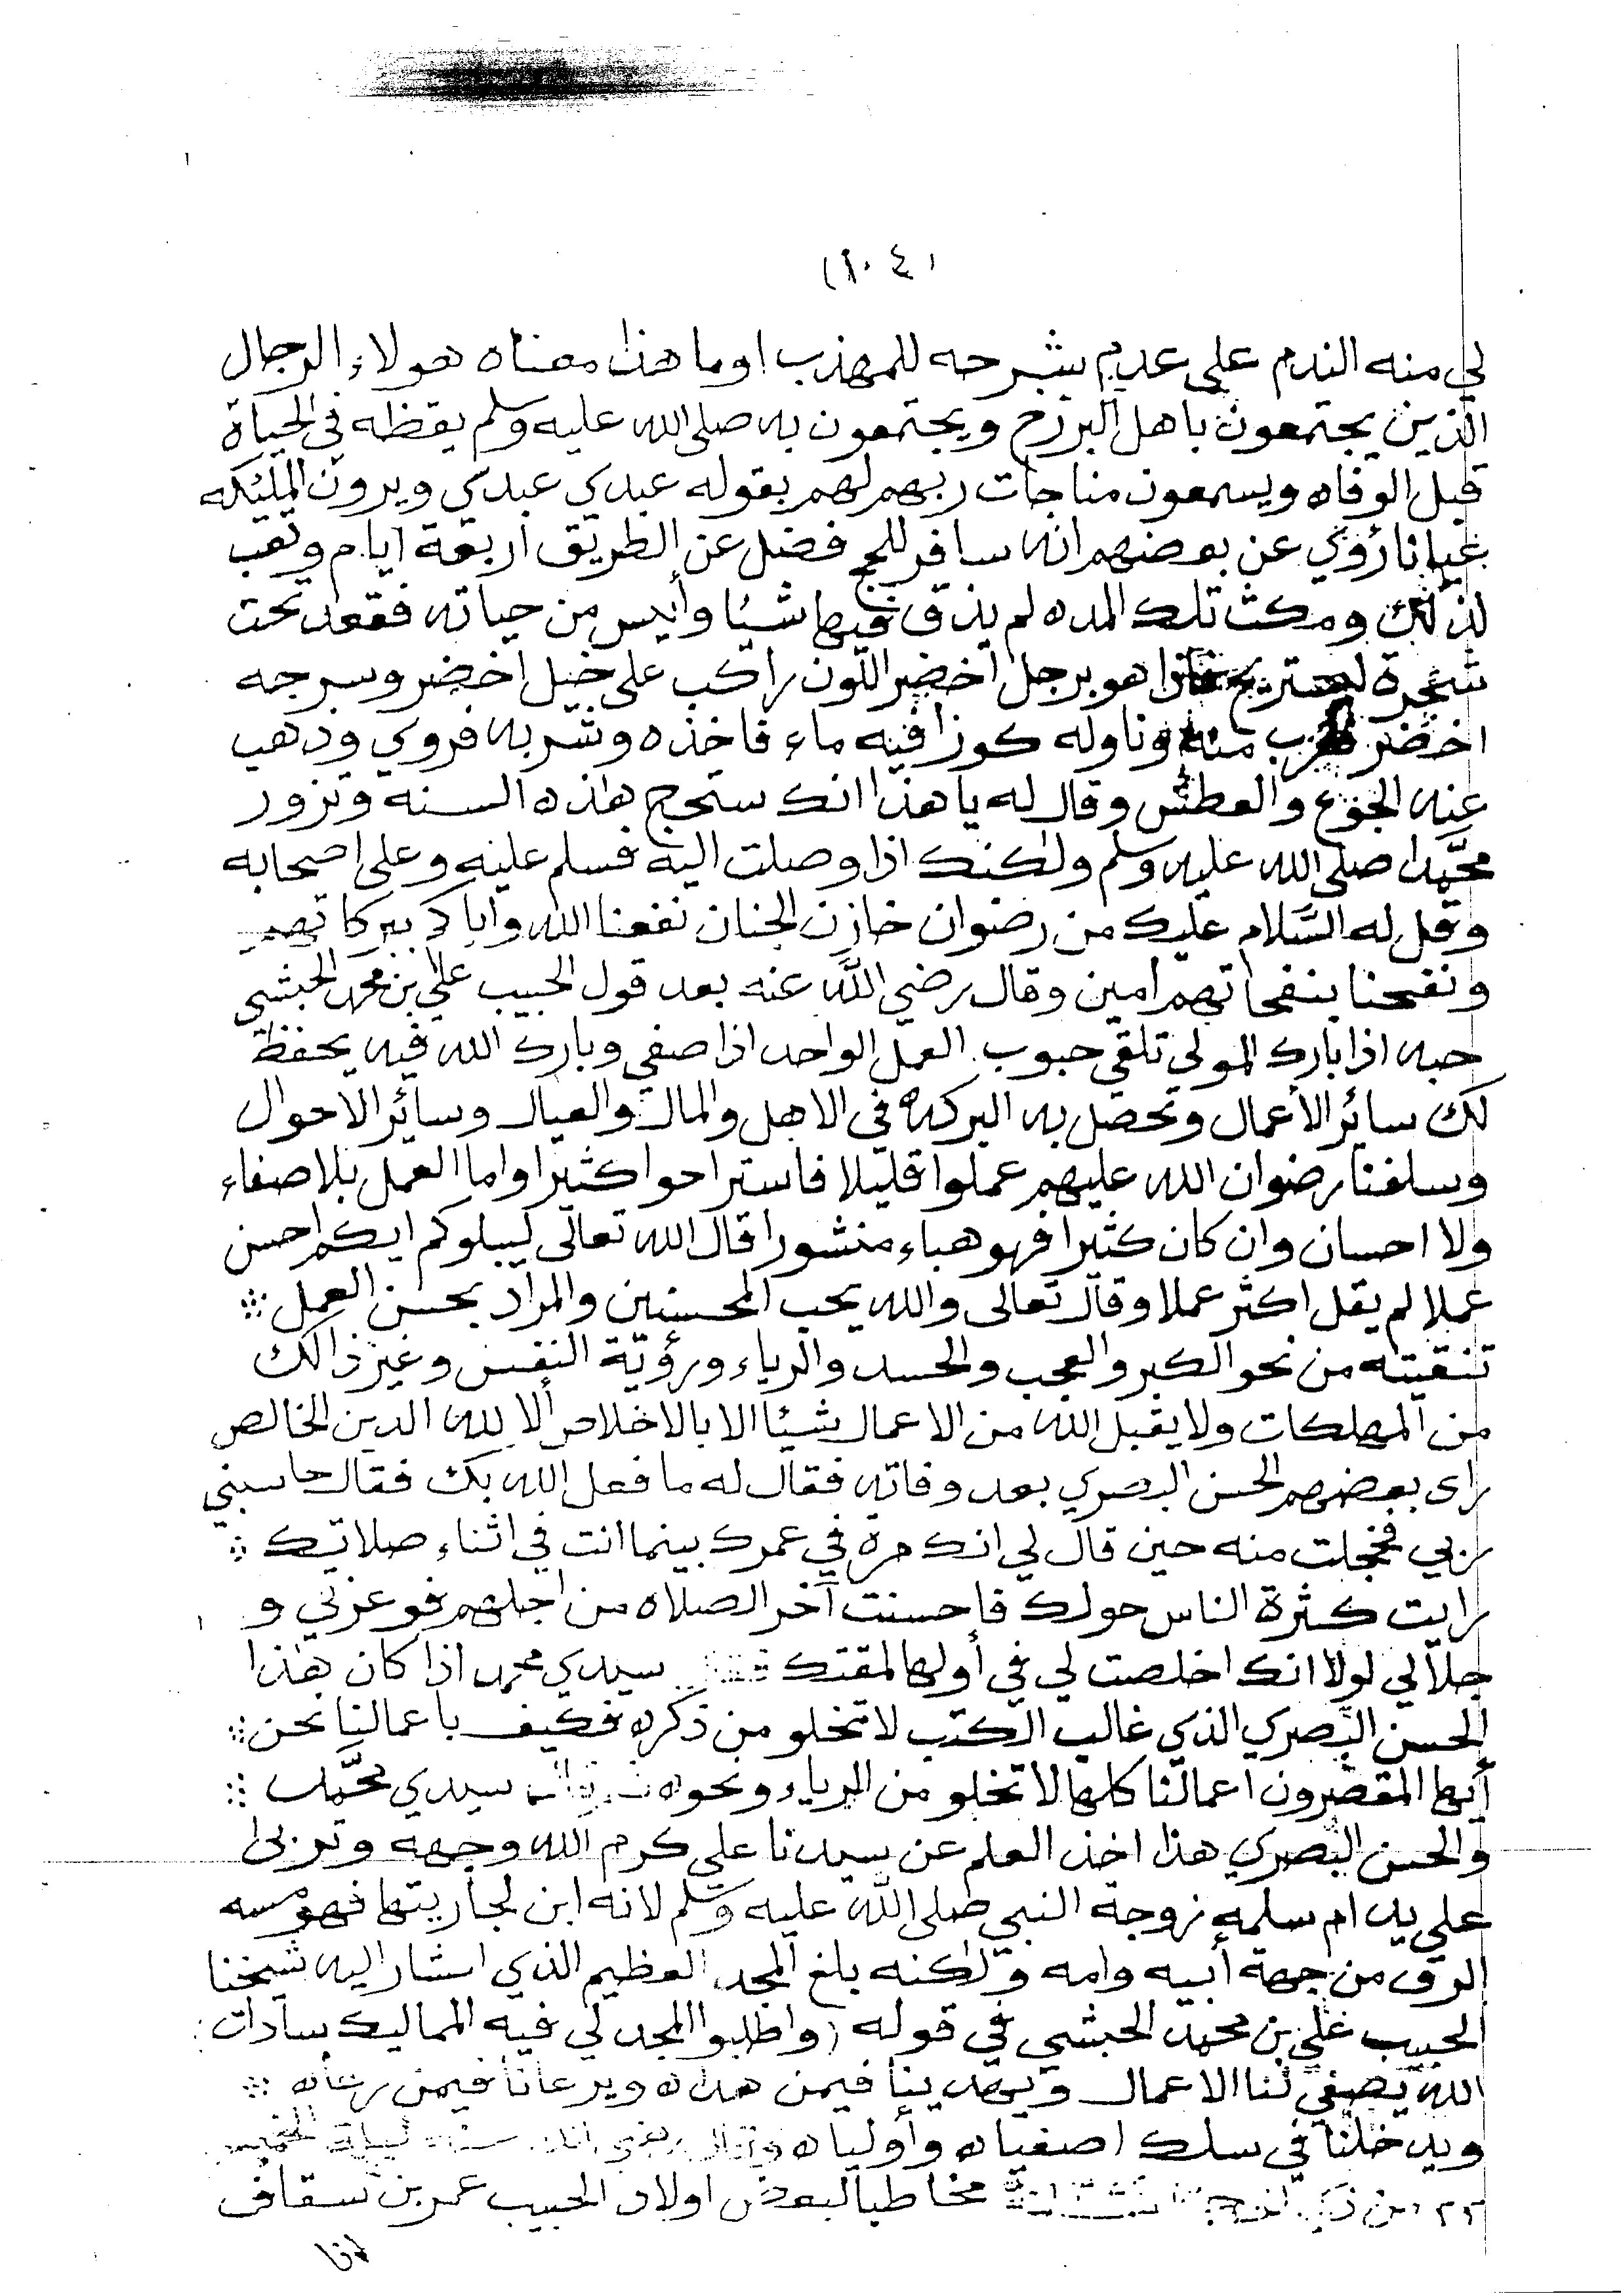 (١٠٤)
لي منه الندم على عدم شرحه للمهذب اوما هذا معناه هولاء الرجال
الذين يجتمعون باهل البرزخ ويجتمعون به صلى الله عليه وسلم يقظه في الحياة
قبل الوفاه ويسمعون مناجات ربهم لهم بقوله عبدي عبدي ويرون المليكه
عيانا رؤي عن بعضهم انه سافر للحج فضل عن الطريق اربعة ايام وتعب
لذلك ومكث تلك المده لم يذق فيها شيئا وأيس من حياته فقعد تحت
شجرة ليستريح فاذا هو برجل اخضر اللون راكب على خيل اخضر وسرجه
اخضر فقرب منه وناوله كوزا فيه ماء فاخذه وشربه فروي وذهب
عنه الجوع والعطش وقال له يا هذا انك ستحج هذه السنه وتزور
محمدا صلى الله عليه وسلم ولكنك اذا وصلت اليه فسلم عليه وعلى اصحابه
وقل له السلام عليك من رضوان خازن الجنان نفعنا الله واياك ببركاتهم
ونفحنا بنفحاتهم امين وقال رضي الله عنه بعد قول الحبيب علي بن محمد الحبشي
حبه اذا بارك المولى تلقي حبوب العمل الواحد اذا صفي وبارك الله فيه يحفظ
لك سائر الأعمال وتحصل به البركه في الاهل والمال والعيال وسائر الاحوال
وسلفنا رضوان الله عليهم عملوا قليلا فاستراحوا كثيرا واما العمل بلا صفاء
ولا احسان وان كان كثيرا فهو هباء منثورا قال الله تعالى ليبلوكم ايكم احسن
عملا لم يقل اكثر عملا وقال تعالى والله يحب المحسنين والمراد بحسن العمل
تنقيته من نحو الكبر والعجب والحسد والرياء ورؤية النفس وغير ذالك
من المهلكات ولا يقبل الله من الاعمال شيئا الا بالاخلاص ألا لله الدين الخالص
راى بعضهم الحسن البصري بعد وفاته فقال له ما فعل الله بك فقال حاسبني
ربي فخجلت منه حين قال لي انك مرة في عمرك بينما انت في اثناء صلاتك
رايت كثرة الناس حولك فاحسنت آخر الصلاه من اجلهم فو عزتي و
جلالي لولا انك اخلصت لي في أولها لمقتك سيدي محمد اذا كان هذا
الحسن البصري الذي غالب الكتب لا تخلو من ذكره فكيف باعمالنا نحن
أيها المقصرون اعمالنا كلها لا تخلو من الرياء ونحوه سيدي محمد
والحسن البصري هذا اخذ العلم عن سيدنا علي كرم الله وجهه وتربى
على يد ام سلمه زوجة النبي صلى الله عليه وسلم لانه ابن لجاريتها فهو مسه
الرق من جهة أبيه وامه ولكنه بلغ المجد العظيم الذي اشار اليه شيخنا
الحبيب علي بن محمد الحبشي في قوله (واطلبوا المجد لي فيه المماليك سادات
الله يصفي لنا الاعمال ويهدينا فيمن هداه ويرعانا فيمن رعاه
ويدخلنا في سلك اصفياه وأولياه ليلة الخميس
٢٢ مخاطبا لبعض اولاد الحبيب عمر بن سقاف